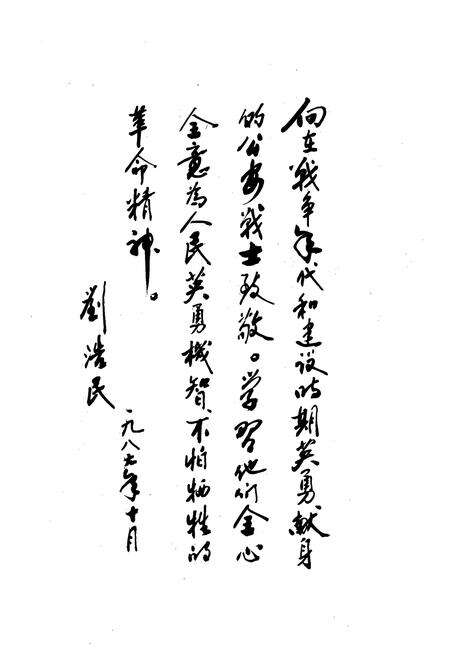 向在戰争年代和建设时期英勇献身
的公安戰士致敬。学習他们全心
全意為人民英勇機智、不怕牺牲的
革命精神。
劉浩民
一九八六年十月